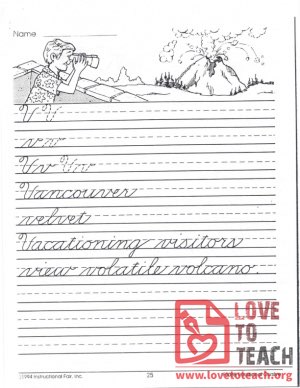 Name
V V
v v
Vv Vv
Vancouver
velvet
Vacationing visitors
view volatile volcano.
LOVE
TO
TEACH
©1994 Instructional Fair, Inc.
25
www.lovetoteach.org